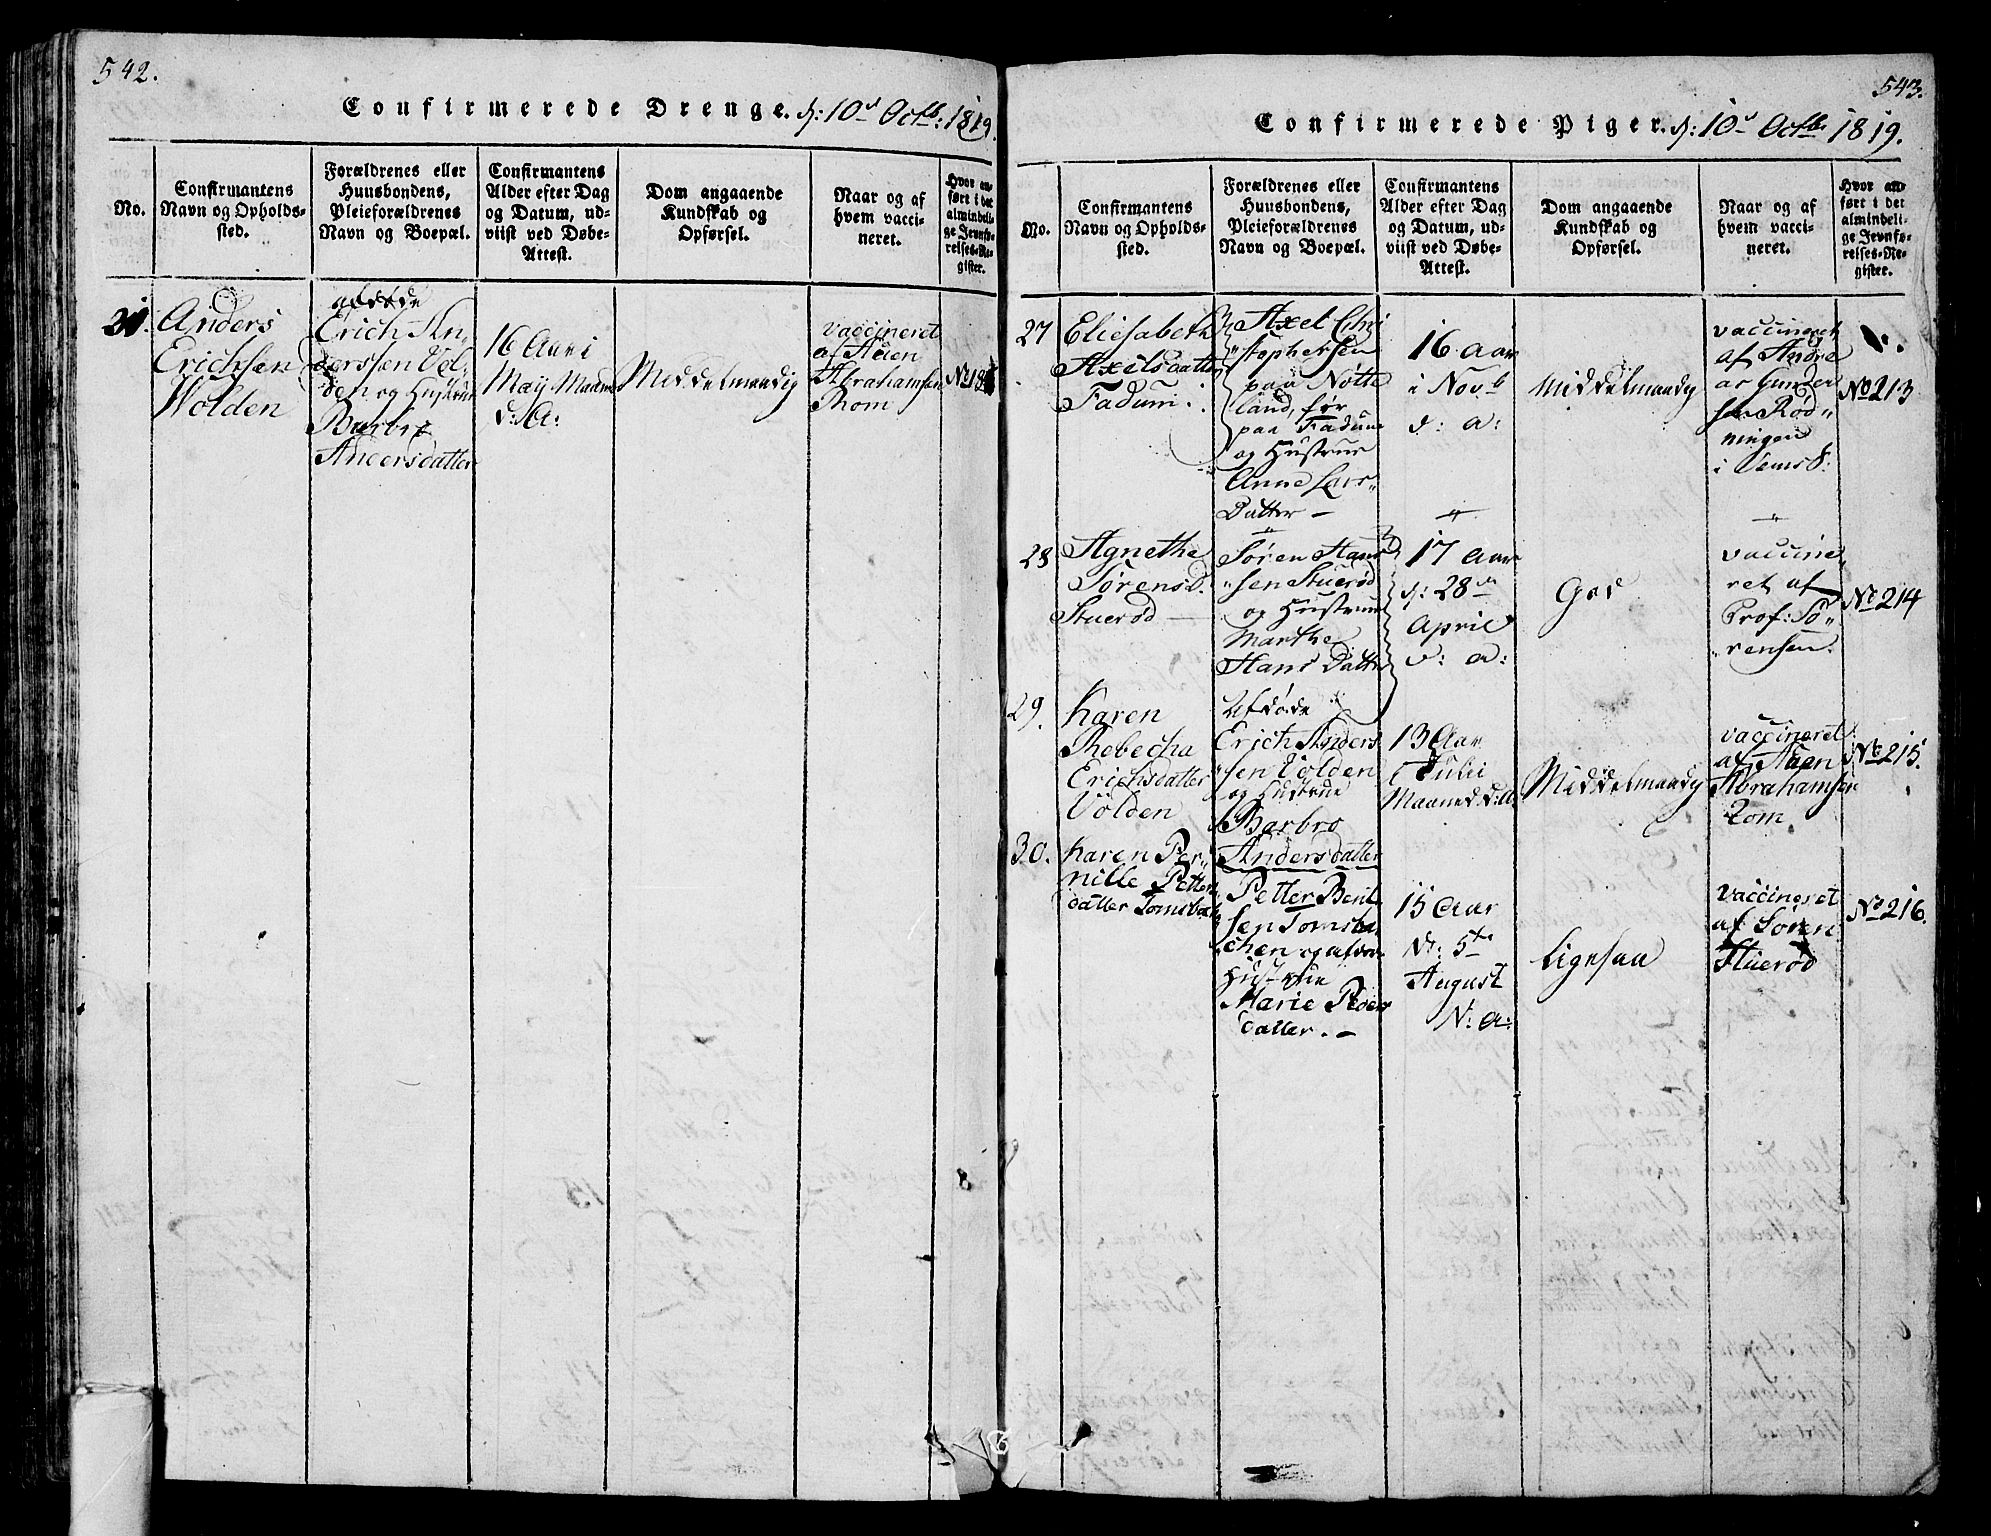 542.
Confirmerede Drenge. d: 10d Octb: 1819.
No.
Confirmantens
Navn og Opholds-
sted.
Forældrenes eller
Huusbondens,
Pleieforældrenes
Navn og Boepæl.
Confirmantens
Alder efter Dag
og Datum, ud-
viist ved Døbe-
Attest.
Dom angaaende
Kundskab og
Opførsel.
Naar og af
hvem vacci-
neret.
Hvor an-
ført i det
almindeli-
ge Jevnfø-
relses-Re-
gister.
Anders
Erichsen
Wolden
afdøde
Erich An,
derssen Vol,
den og Hustrue
Barbro
Andersdatter
16 Aar i
May Maaned
d: A:
Middelmaadig
vaccineret
af
Abrahamsen
Thom
543.
Confirmerede Piger. d: 10d Octb: 1819.
No.
Confirmantens
Navn og Opholds-
sted.
Forældrenes eller
Huusbondens,
Pleieforældrenes
Navn og Boepæl.
Confirmantens
Alder efter Dag
og Datum, ud-
viist ved Døbe-
Attest.
Dom angaaende
Kundskab og
Opførsel.
Naar og af
hvem vacci-
neret.
Hvor an-
ført i det
almindeli-
ge Jevnfø-
relses-Re-
gister.
27
Eliesabeth
Axelsdatter
Fadum.
Axel Chri
stophersen
paa Nøtte
land, før
paa Fadum
og Hustrue
Anne Lars"
Datter –
16 Aar
i Novb
d: a:
Middelmaadig
vaccineret
af Andre
as Gunder
sen Rød"
ningen
i Sems S:
No 213
28
Agnethe
Sørensd.
Stuerød
Søren Han
sen Stuerød
og Hustrue
Marthe
Hans Datter
17 Aar
d: 28de
April
d: a:
God
vaccine,
ret af
Prof: Sø"
rensen.
No 214
29.
Karen
Rebecha
Erichsdatter
Volden
Afdøde
Erich Anders
sen Volden
og Hustrue
Barbro
Andersdatter
13 Aar
i Julii
Maaned d: A:
Middelmaadig
vaccineret
af
Abrahamsen
Tom
No 215.
30.
Karen Per"
nille Petter
datter Tomsbak
Petter Bent
sen Tomsba,
chen og afdøe
Hustrue
Marie Peder
datter. –
15 Aar
d: 5te
August
d: a:
Ligesaa
vaccineret
af Søren
Stuerød
No 216.